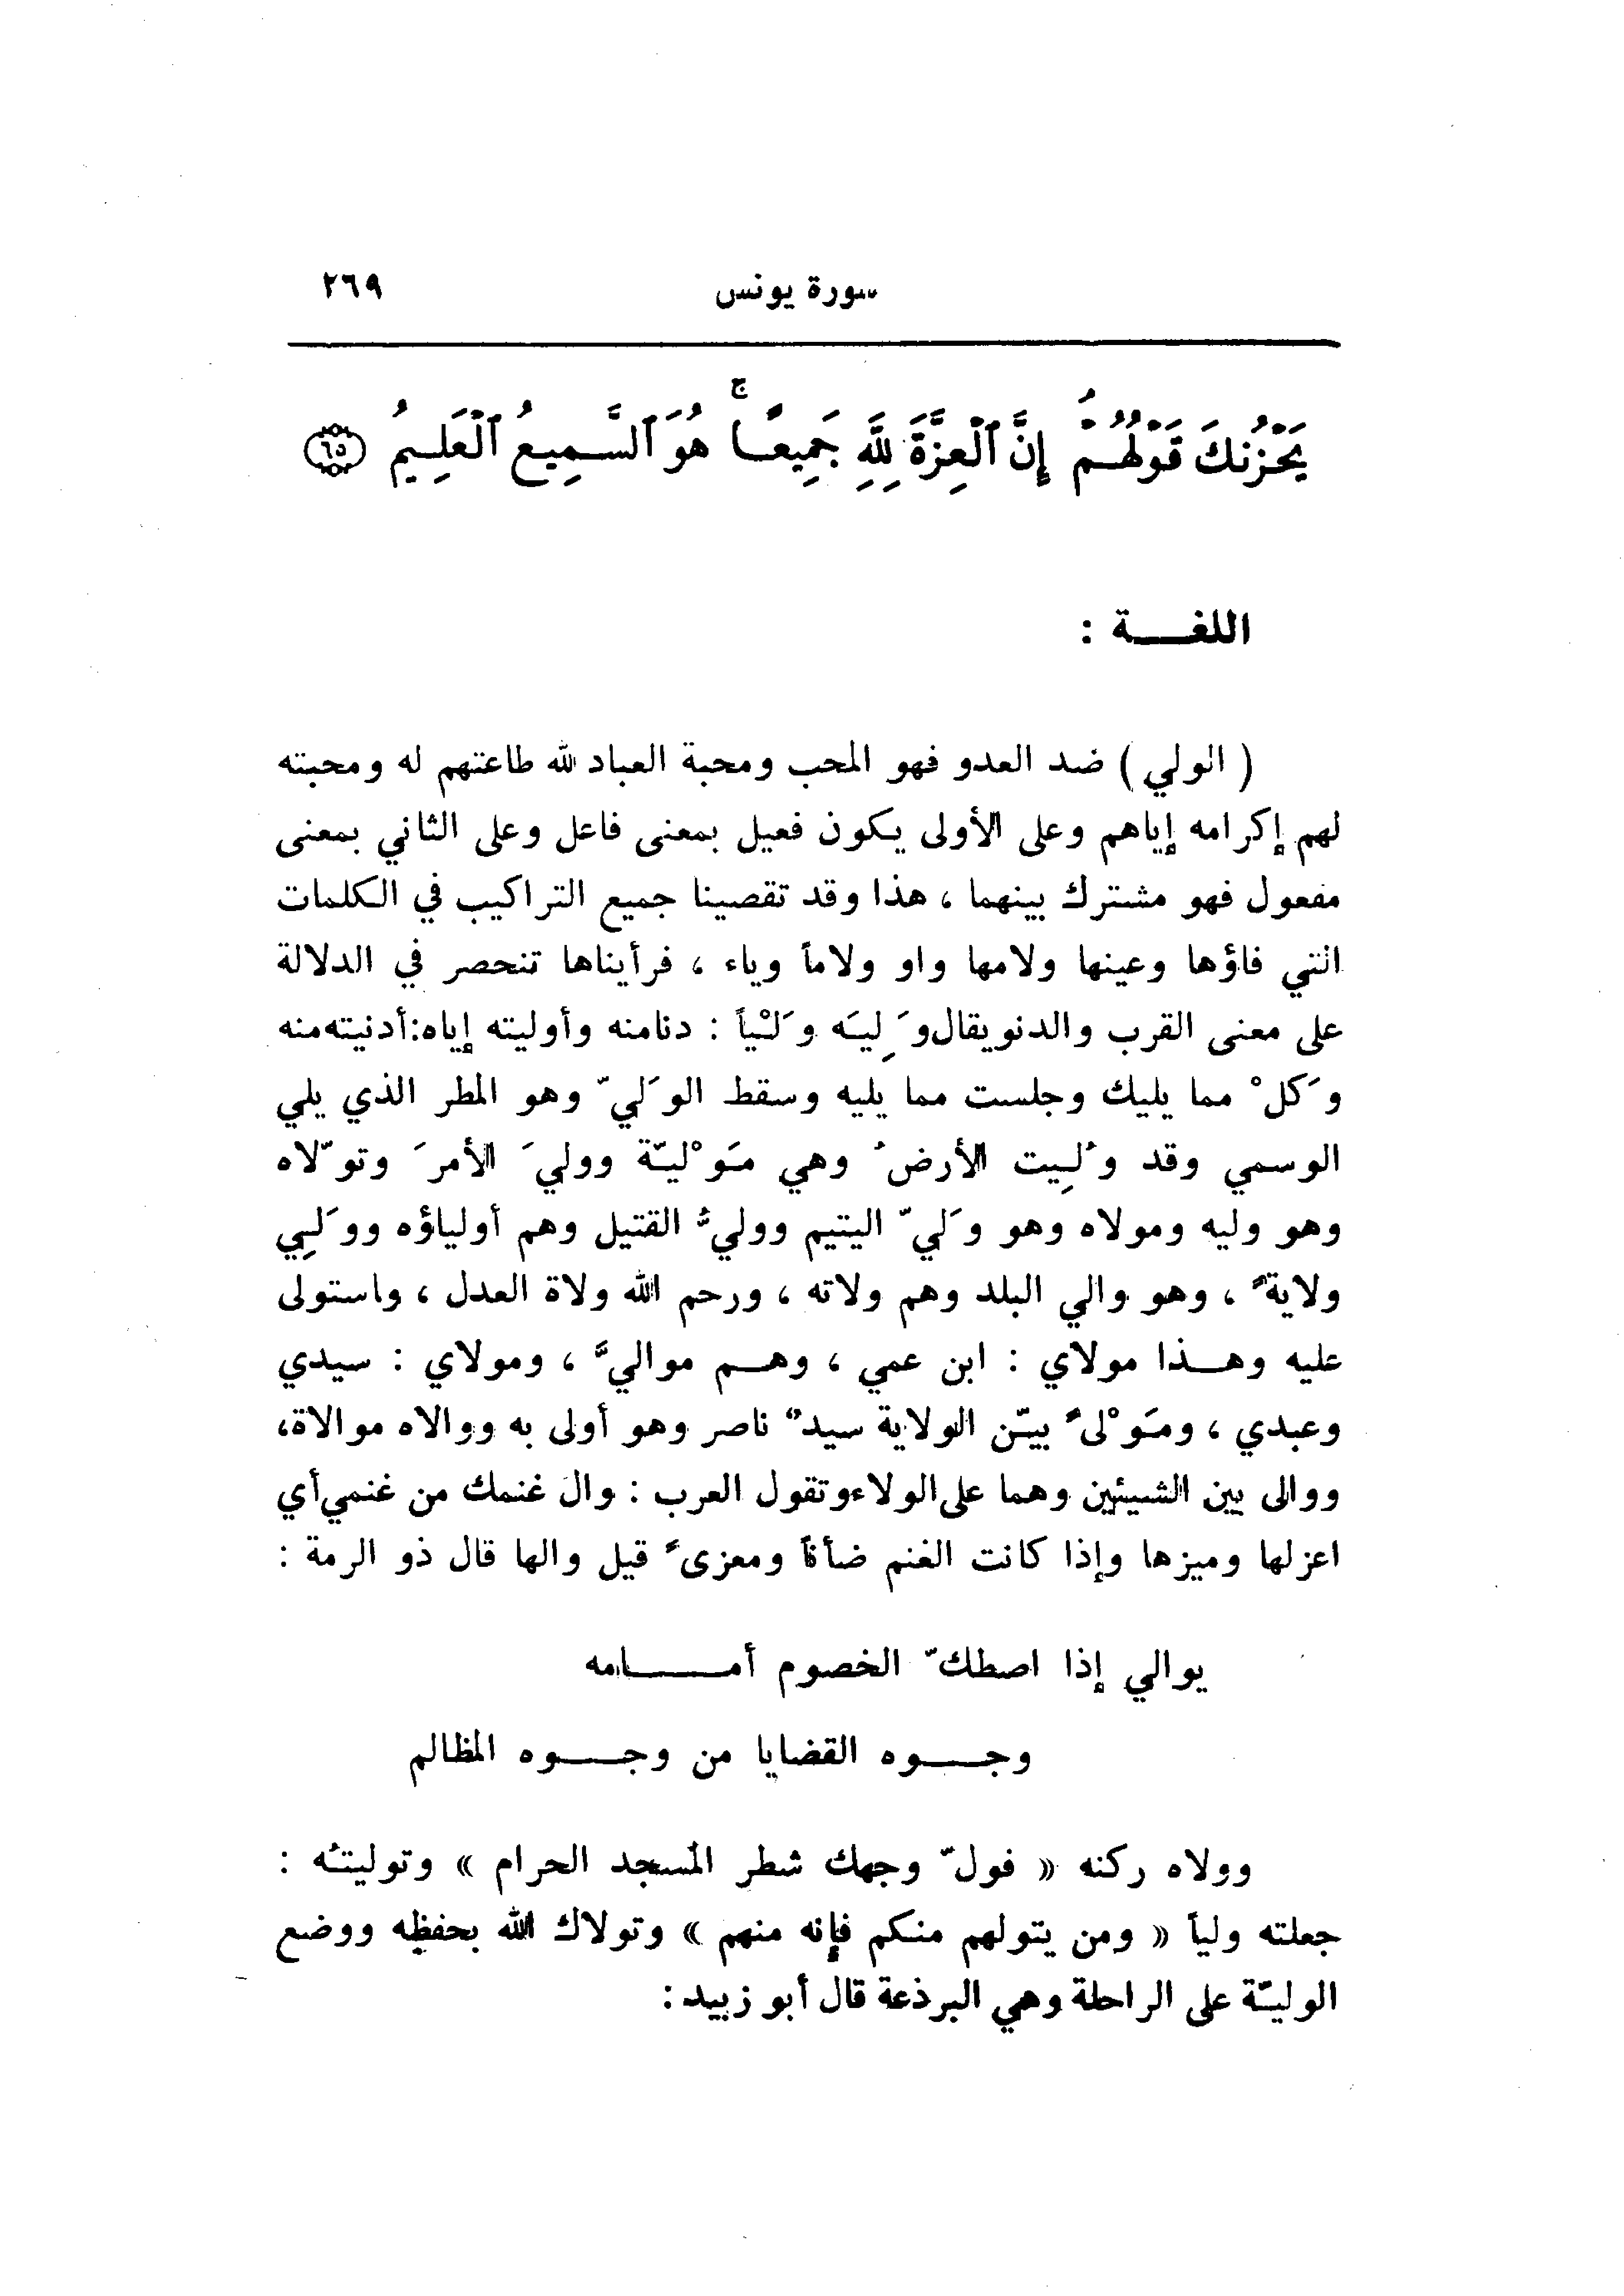 سورة يونس ٢٦٩
يَحْزُنكَ قَوْلُهُمْ إِنَّ ٱلْعِزَّةَ لِلَّهِ جَمِيعًا ۚ هُوَ ٱلسَّمِيعُ ٱلْعَلِيمُ ٦٥
اللغـــة :
( الولي ) ضد العدو فهو المحب ومحبة العباد لله طاعتهم له ومحبته
لهم إكرامه إياهم وعلى الأولى يكون فعيل بمعنى فاعل وعلى الثاني بمعنى
مفعول فهو مشترك بينهما ، هذا وقد تقصينا جميع التراكيب في الكلمات
التي فاؤها وعينها ولامها واو ولاماً وياء ، فرأيناها تنحصر في الدلالة
على معنى القرب والدنو يقال وَلِيَه وَلْياً : دنا منه وأوليته إياه : أدنيته منه
وَكلْ مما يليك وجلست مما يليه وسقط الوَليّ وهو المطر الذي يلي
الوسمي وقد وُلِيت الأرضُ وهي مَوْليّة ووليَ الأمرَ وتوّلاه
وهو وليه ومولاه وهو وَليّ اليتيم ووليُّ القتيل وهم أولياؤه ووَلِي
ولايةً ، وهو والي البلد وهم ولاته ، ورحم الله ولاة العدل ، واستولى
عليه وهــذا مولاي : ابن عمي ، وهــم مواليَّ ، ومولاي : سيدي
وعبدي ، ومَوْلىً بيّن الولاية سيدٌ ناصر وهو أولى به ووالاه موالاة،
ووالى بين الشيئين وهما على الولاء وتقول العرب : وال غنمك من غنمي أي
اعزلها وميزها وإذا كانت الغنم ضأناً ومعزىً قيل والها قال ذو الرمة :
يوالي إذا اصطكّ الخصوم أمــــامه
وجــــوه القضايا من وجــــوه المظالم
وولاه ركنه « فولّ وجهك شطر المسجد الحرام » وتوليتُه :
جعلته ولياً « ومن يتولهم منكم فإنه منهم » وتولاك الله بحفظه ووضع
الوليّة على الراحلة وهي البرذعة قال أبو زبيد :